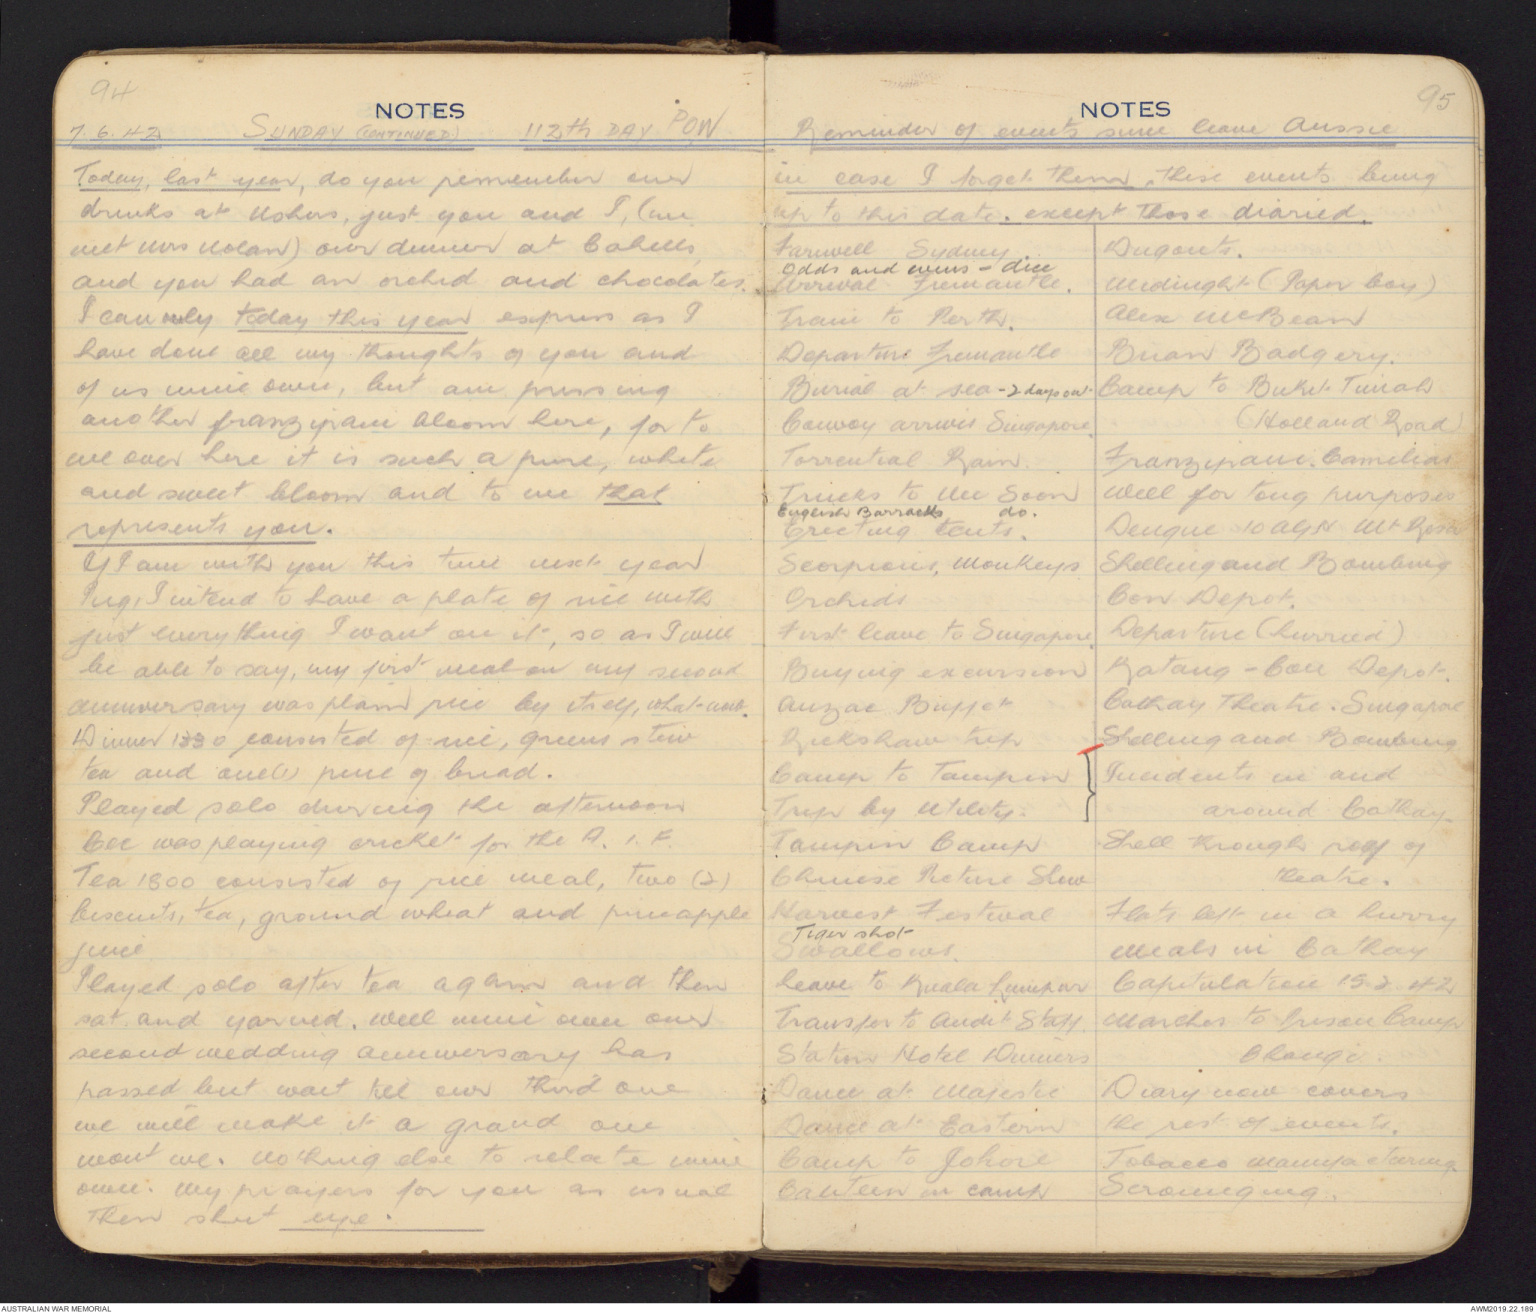 94
NOTES
7.6.42 SUNDAY (CONTINUED) 112th DAY POW
Today, last year, do you remember our
drinks at Ushers, just you and I, (we
met Mrs Nolan) our dinner at Cahells,
and you had an orchid and chocolates.
I can only today this year express as I
have done all my thoughts of you and
of us mine own, but am pressing
another franzipani bloom here, for to
me over here it is such a pure, white
and sweet bloom and to me that
represents you.
If I am with you this time next year
I intend to have a plate of rice with
just everything I want on it, so as I will
be able to say, my first meal on my second
anniversary was plain rice by itself,
Dinner 1330 consisted of rice, greens stew
tea and one (1) piece of bread.
Played solo during the afternoon
Cec was playing cricket for the A.I.F.
Tea 1800 consisted of rice meal, two (2)
biscuits, tea, ground wheat and pineapple
juice
Played solo after tea again and then
sat and yarned. Well mine own our
second wedding anniversary has
passed but wait till our third one
we will make it a grand one
wont we. Nothing else to relate mine
own. My prayers for you as usual
then shut eye.
95
NOTES
Reminder of events since leave Aussie
in case I forget them, these events being
up to this date. except those diaried.
Farwell Sydney.
Odds and evens - dice
Arrival Fremantle.
Train to Perth.
Departure Fremantle
Burial at sea - 2 days out
Convoy arrives Singapore.
Torrential Rain.
Trucks to Nee Soon
English Barracks do.
Erecting tents.
Scorpions, Monkeys
Orchids
First leave to Singapore
Buying excursion
Anzac Buffet
Rickshaw trip
Camp to Tampin
Trip by Utility.
Tampin Camp
Chinese Picture Show
Harvest Festival
Tiger shot
Swallows.
Leave to Kuala Lumpur
Transfer to Audit Staff
Station Hotel Dinners
Dance at Majestic
Dance at Eastern
Camp to Johore
Canteen in camp
Dugouts.
Midinght (Paper boy)
Alex McBean
Brian Badgery.
Camp to Bukit Timah
(Holland Road)
Franzipani. Camelias
Well for tong purposes
Dengue 10 AGH Mt Rosie
Shelling and Bombing
Con Depot.
Departure (hurried)
Katang - Con Depot.
Cathay Theatre. Singapore
Shelling and Bombing
Incidents in and
around Cathay.
Shell through roof of
theatre.
Flats left in a hurry
Meals in Cathay
Capitulation 15.2.42
Marches to Prison Camp
Changi.
Diary now covers
the rest of events.
Tobacco manufacturing.
Scrounging.
AUSTRALIAN WAR MEMORIAL
AWM2019.22.189